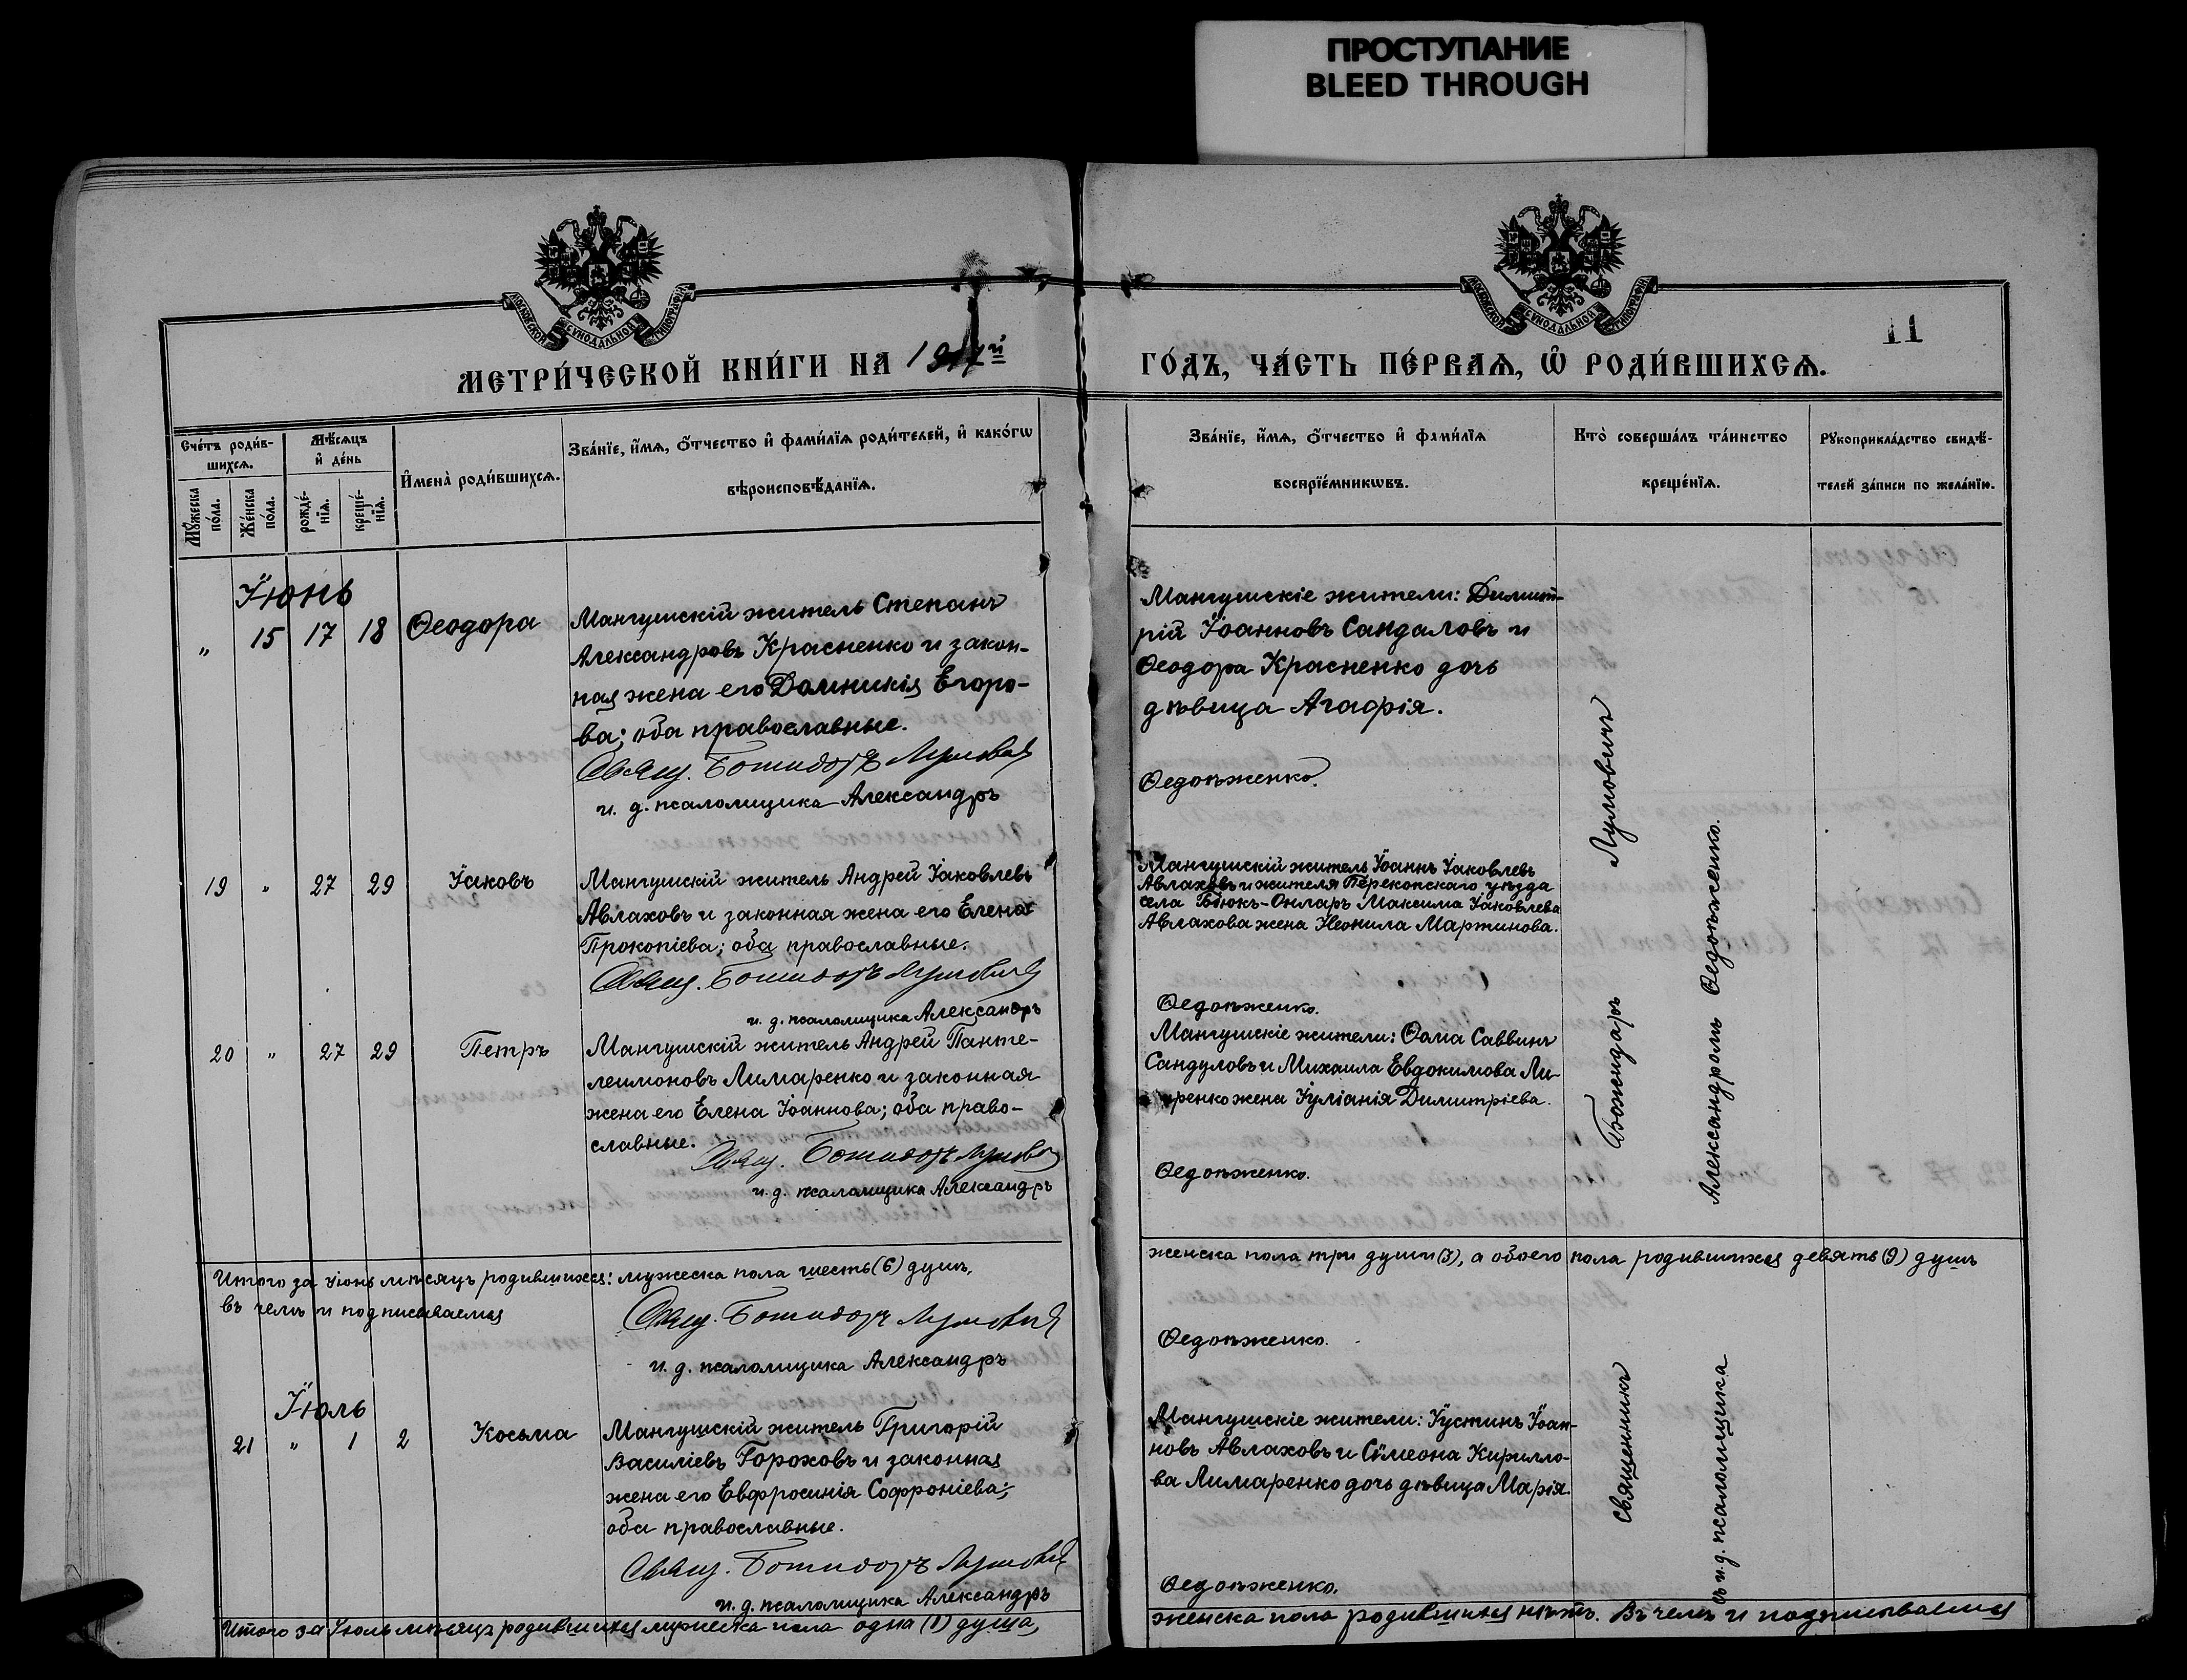 ПРОСТУПАНИЕ
BLEED THROUGH
МОСКОВСКОЙ СѴНОДАЛЬНОЙ ТИПОГРАФІИ
МОСКОВСКОЙ СѴНОДАЛЬНОЙ ТИПОГРАФІИ
11
МЕТРИ́ЧЕСКОЙ КНИ́ГИ НА 1917й ГО́ДЪ, ЧА́СТЬ ПЕ́РВАѦ, Ѡ҆ РОДИ́ВШИХСѦ.
Сче́тъ роди́в-
шихсѧ.
Мѣ́сѧцъ
и҆ де́нь
И҆мена̀ роди́вшихсѧ.
Зва́нїе, и҆́мѧ, ѻ҆́тчество и҆ фами́лїѧ роди́телей, и҆ како́гѡ
вѣроисповѣ́данїѧ.
Мꙋ́жеска
по́ла.
Же́нска
по́ла.
рожде́-
нїѧ.
креще́-
нїѧ.
Зва́нїе, и҆́мѧ, ѻ҆́тчество и҆ фами́лїѧ
воспрїе́мникѡвъ.
Кто̀ соверша́лъ та́инство
креще́нїѧ.
Рꙋкоприкла́дство свидѣ́-
телей за́писи по жела́нїю.
Іюнь
" 15 17 18 Ѳеодора
Мангушскій житель Степанъ
Александровъ Красненко и закон-
ная жена его Домникія Егоро-
ва; оба православные.
Свящ. Божидоръ Лумовичъ
и. д. псаломщика Александръ
Мангушскіе жители: Димит-
рій Іоанновъ Сандаловъ и
Ѳеодора Красненко дочь
дѣвица Агаѳія.
Ѳедоѣженко.
19 " 27 29 Іаковъ
Мангушскій житель Андрей Іаковлевъ
Авлаховъ и законная жена его Елена
Прокопіева; оба православные.
Свящ. Божидоръ Лумовичъ
и. д. псаломщика Александръ
Мангушскій житель Іоаннъ Іаковлевъ
Авлаховъ и жителя Перекопскаго уѣзда
села Бюкъ-Онларъ Максима Іаковлева
Авлахова жена Неонила Мартинова.
Ѳедоѣженко.
20 " 27 29 Петръ
Мангушскій житель Андрей Панте-
леимоновъ Лимаренко и законная
жена его Елена Іоаннова; оба право-
славные.
Свящ. Божидоръ Лумовичъ
и. д. псаломщика Александръ
Мангушскіе жители: Ѳома Саввинъ
Сандуловъ и Михаила Евдокимова Ли-
ренко жена Іуліанія Димитріева.
Ѳедоѣженко.
Итого за Іюнь мѣсяцъ родившихся: мужеска пола шесть (6) душъ, женска пола три души (3), а обоего пола родившихся девять (9) душъ
въ чемъ и подписываемся
Свящ. Божидоръ Лумовичъ
и. д. псаломщика Александръ
Ѳедоѣженко.
Іюль
21 " 1 2 Косьма
Мангушскій житель Григорій
Василіевъ Гороховъ и законная
жена его Евфросинія Софроніева;
оба православные.
Свящ. Божидоръ Лумовичъ
и. д. псаломщика Александръ
Мангушскіе жители: Іустинъ Іоан-
новъ Авлаховъ и Сѵмеона Кирилло-
ва Лимаренко дочь дѣвица Марія.
Ѳедоѣженко.
Священникъ Божидаръ Лумовичъ
съ и. д. псаломщика Александромъ Ѳедоѣженко.
Итого за Іюль мѣсяцъ родившихся мужеска пола одна (1) душа, женска пола родившихся нѣтъ. Въ чемъ и подписываемся